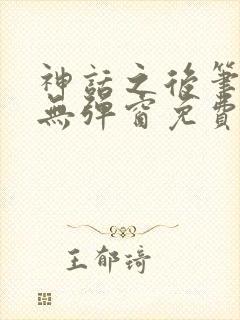 神話之後筆
無彈窗免費
王郁琦